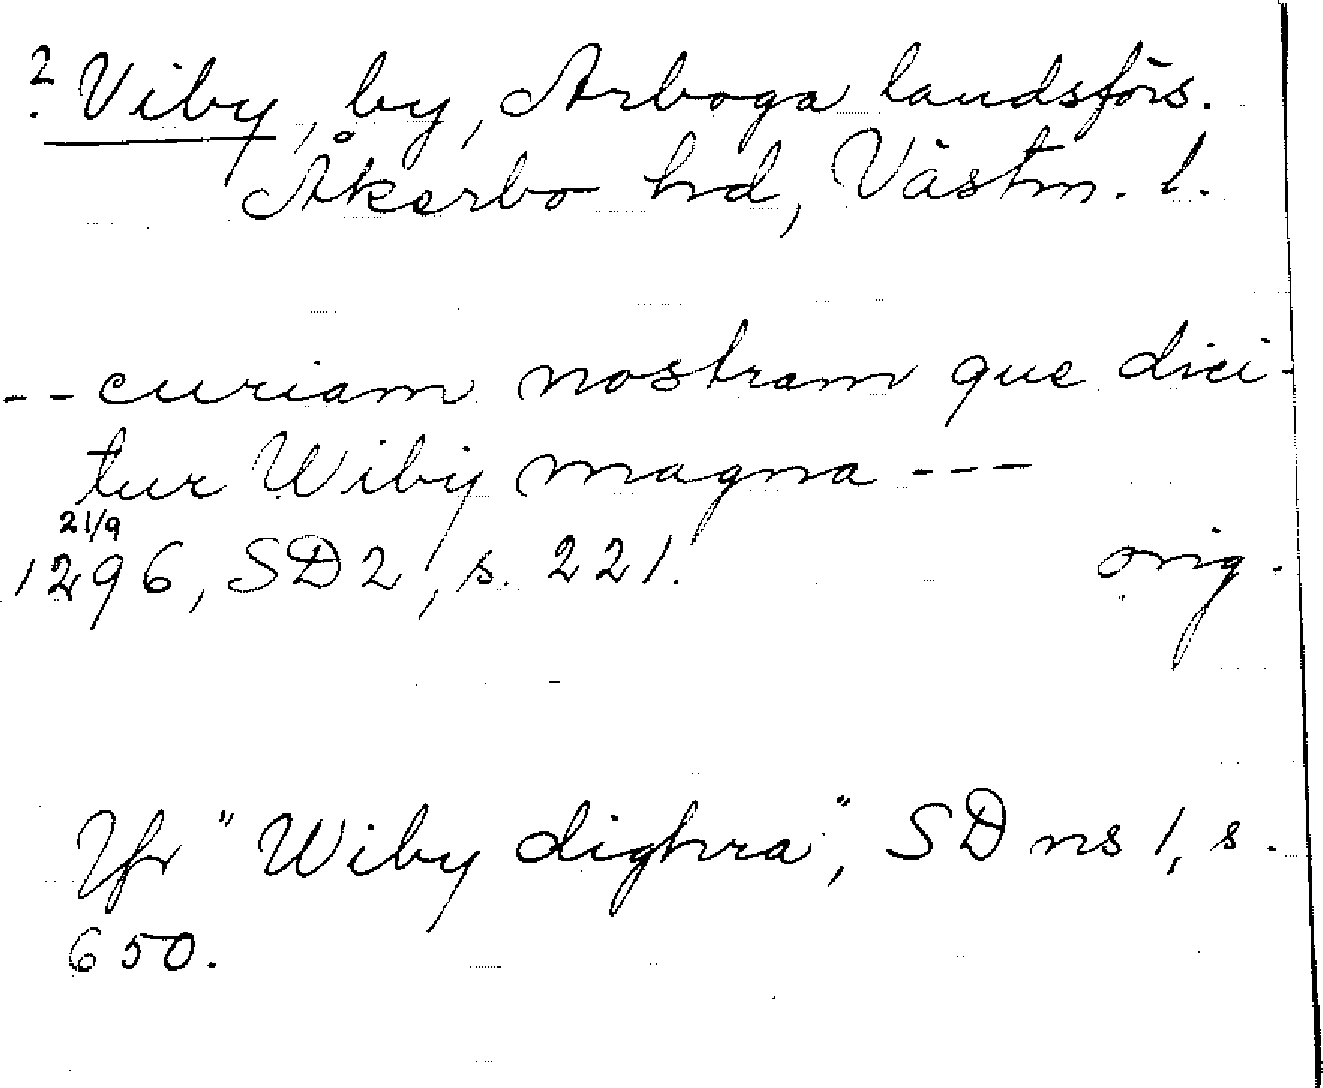 ? Viby, by, Arboga landsförs.
Åkerbo hd, Västm. l.
-- curiam nostram que dici-
tur Wibÿ magna ---
21/9
1296, SD 2, s. 221. orig.
Jfr "Wiby dighra", SD ns 1, s.
650.